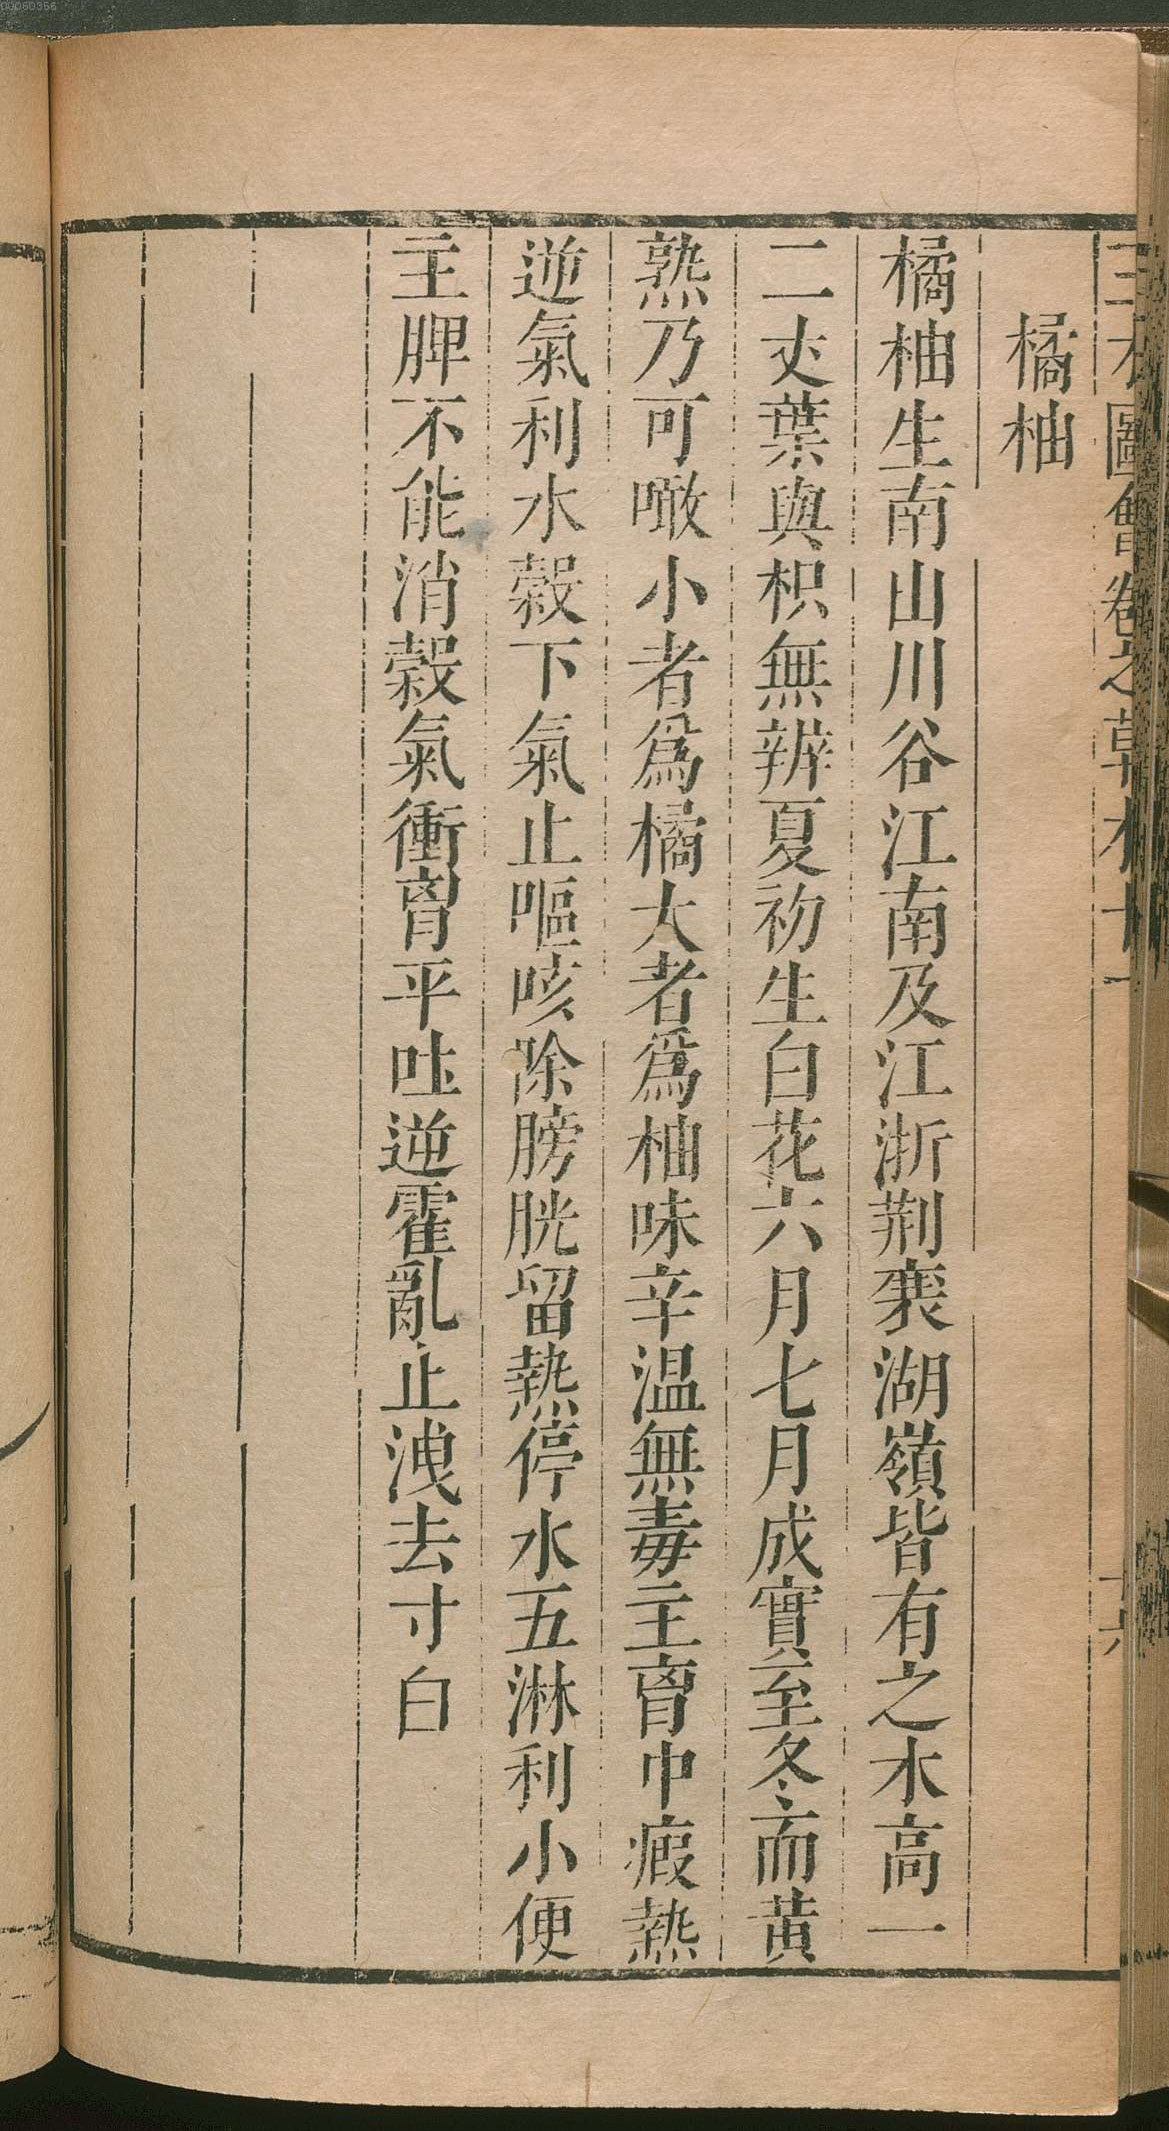 00060356
三才圖會卷之草木十一
十六
橘柚
橘柚生南山川谷江南及江浙荆襄湖嶺皆有之木高一
二丈葉與枳無辨夏初生白花六月七月成實至冬而黃
熟乃可噉小者為橘大者為柚味辛温無毒主胷中瘕熱
逆氣利水榖下氣止嘔咳除膀胱留熱停水五淋利小便
主脾不能消榖氣衝胷平吐逆霍亂止洩去寸白